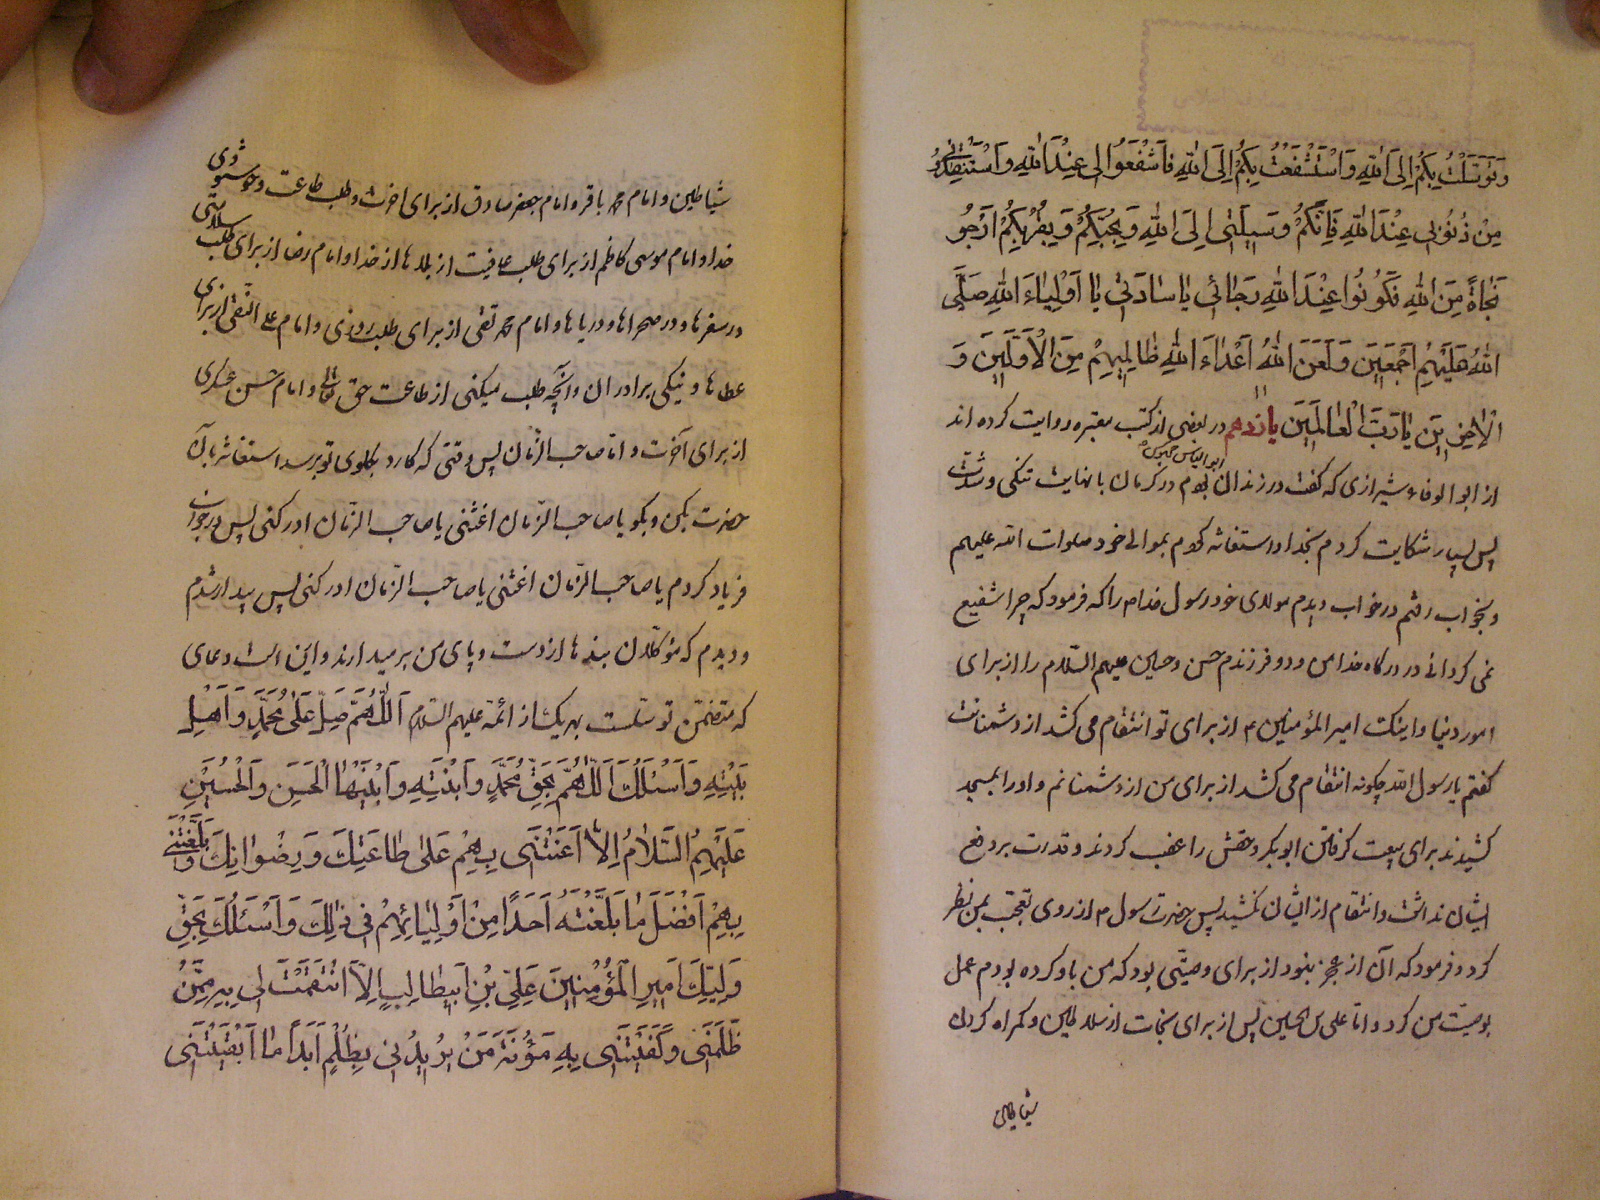 وَتَوَسَّلْتُ بِكُمْ اِلَى اللهِ وَاسْتَشْفَعْتُ بِكُمْ اِلَى اللهِ فَاشْفَعُوا لى عِنْدَ اللهِ وَاسْتَنْقِذُونى
مِنْ ذُنُوبى عِنْدَ اللهِ فَاِنَّكُمْ وَسيلَتى اِلَى اللهِ وَبِحُبِّكُمْ وَبِقُرْبِكُمْ اَرْجُو
نَجاةً مِنَ اللهِ فَكُونُوا عِنْدَ اللهِ رَجائى يا سادَتى يا اَوْلِياءَ اللهِ صَلَّى
اللهُ عَلَيْهِمْ اَجْمَعينَ وَلَعَنَ اللهُ اَعْداءَ اللهِ ظالِميهِمْ مِنَ الْاَوَّلينَ وَ
الْاخِرينَ يا رَبَّ الْعالَمينَ يازدهم در بعضى از كتب معتبره روايت كرده اند
از ابو الوفاء شيرازى كه گفت در زندان ابوالياس بودم در كرمان با نهايت تنگى و شدت
پس بسيار شكايت كردم بخدا و استغاثه كردم بموالى خود صلوات الله عليهم
و بخواب رفتم در خواب ديدم مولاى خود رسول خدا ص را كه فرمود كه چرا شفيع
نمى گردانى در درگاه خدا من و دو فرزندم حسن و حسين عليهم السّلام را از براى
امور دنيا و اينكت امير المؤمنين ع از براى تو انتقام مى كشد از دشمنانت
گفتم يا رسول الله چگونه انتقام مى كشد از براى من از دشمنانم و او را بمسجد
كشيدند براى بيعت گرفتن ابو بكر و حقش را غصب كردند و قدرت بر دفع
ايشان نداشت و انتقام از ايشان نكشيد پس حضرت رسول ص از روى تعجب بمن نظر
كرد و فرمود كه آن از عجز نبود از براى وصيّتى بود كه من باو كرده بودم عمل
بوصيت من كرد و امّا على بن الحسين پس از براى نجات از سلاطين و گمراه كردن
شياطين
شياطين و امام محمد باقر و امام جعفر صادق از براى اخرت و طلب طاعت و خوشنودى
خدا و امام موسى كاظم از براى طلب عافيت از بلاها از خدا و امام رضا از براى طلب سلامتى
در سفرها و در صحراها و درياها و امام محمد تقى از براى طلب روزى و امام على النّقى از براى
عطاها و نيكى برادران و آنچه طلب ميكنى از طاعت حق تعالى و امام حسن عسكرى
از براى آخرت و امّا صاحب الزّمان پس وقتى كه كارد بگلوى تو برسد استغاثه بآن
حضرت بكن و بگو يا صاحب الزّمان اغثنى يا صاحب الزّمان ادركنى پس در خواب
فرياد كردم يا صاحب الزّمان اغثنى يا صاحب الزّمان ادركنى پس بيدار شدم
و ديدم كه مؤكّلان بندها از دست و پاى من بر ميدارند و اين است دعاى
كه متضمّن توسّلست بهر يك از ائمّه عليهم السّلام اَللّهُمَّ صَلِّ عَلى مُحَمَّدٍ وَاَهْلِ
بَيْتِهِ وَاَسْئَلُكَ اَللّهُمَّ بِحَقِّ مُحَمَّدٍ وَابْنَتِهِ وَابْنَيْهَا الْحَسَنِ وَالْحُسَيْنِ
عَلَيْهِمُ السَّلامُ اِلّا اَعَنْتَنى بِهِمْ عَلى طاعَتِكَ وَرِضْوانِكَ وَبَلَّغْتَنى
بِهِمْ اَفْضَلَ ما بَلَّغْتَهُ اَحَدًا مِنْ اَوْلِيائِهِمْ فى ذلِكَ وَاَسْئَلُكَ بِحَقِّ
وَلِيِّكَ اَميرِ الْمُؤْمِنينَ عَلِىِّ بْنِ اَبيطالِبٍ اِلّا انْتَقَمْتَ لى بِهِ مِمَّنْ
ظَلَمَنى وَكَفَيْتَنى بِهِ مَؤُنَةَ مَنْ يُريدُنى بِظُلْمٍ اَبَداً ما اَبْقَيْتَنى